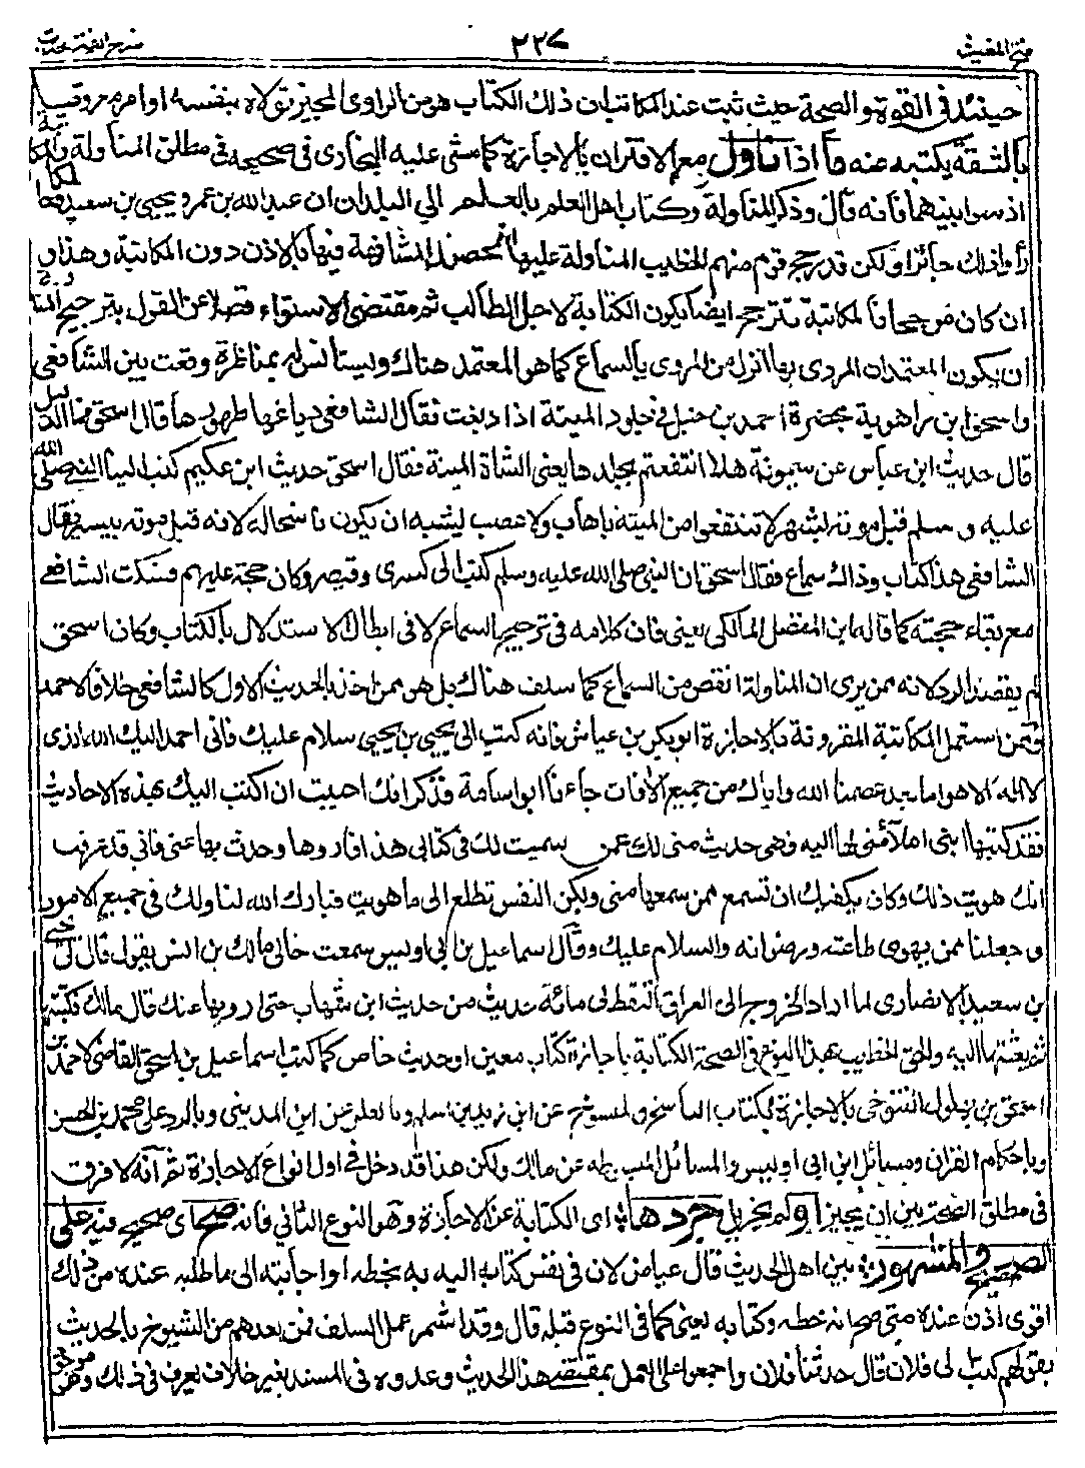 فتح المغيث ٢٢٧ شرح الفية حديث
حينئذ فى القوة والصحة حيث ثبت عند المكاتب ان ذلك الكتاب هو من الراوى المجيز تولاه بنفسه او امر معروفا
بالثقة يكتبه عنه فأما اذا ناول مع الاقتران بالاجازة كما مشى عليه البخارى فى صحيحه فى مطلق المناولة والمكاتبة
اذ سوا بينهما فانه قال وذكر المناولة وكتاب اهل العلم بالعلم الى البلدان ان عبد الله بن عمر و يحيى بن سعيد ومالكا
رأوا ذلك جائزا ولكن قد رجح قوم منهم الخطيب المناولة عليها لحصول المشافهة فيها بالاذن دون المكاتبة وهذا و
ان كان مرجحا فالمكاتبة تترجح ايضا بكون الكتابة لاجل الطالب ثم مقتضى الاستواء فضلا عن القول بترجيح المناولة
ان يكون المعتمد ان المروى بها انزل من المروى بالسماع كما هو المعتمد هناك ويستأنس له بمناظرة وقعت بين الشافعى
واسحق ابن راهوية بحضرة احمد بن حنبل فى جلود الميتة اذا دبغت فقال الشافعى دباغها طهورها قال اسحق فما الدليل
قال حديث ابن عباس عن ميمونة هلا انتفعتم بجلدها يعنى الشاة الميتة فقال اسحق حديث ابن عكيم كتب الينا النبى صلى الله
عليه و سلم قبل موته بشهر لا تنتفعوا من الميتة باهاب ولا عصب يشبه ان يكون ناسخا له لانه قبل موته بيسير فقال
الشافعى هذا كتاب وذاك سماع فقال اسحق ان النبى صلى الله عليه وسلم كتب الى كسرى وقيصر وكان حجة عليهم فسكت الشافعى
مع بقاء حجته كما قاله ابن المفضل المالكى يعنى فان كلامه فى ترجيح السماع لا فى ابطال الاستدلال بالكتاب وكان اسحق
لم يقصد الرد لانه ممن يرى ان المناولة انقص من السماع كما سلف هناك بل هو ممن اخذ بالحديث الاول كالشافعى خلافا لاحمد
وممن استعمل المكاتبة المقرونة بالاجازة ابوبكر بن عياش فانه كتب الى يحيى بن يحيى سلام عليك فانى احمد اليك الله الذى
لا اله الا هو اما بعد عصمنا الله واياك من جميع الآفات جاءنا ابو اسامة فذكر انك احببت ان اكتب اليك بهذه الاحاديث
فقد كتبها ابنى املاء منى لها اليه فهى حديث منى لك عمن سميت لك فى كتابى هذا فاروها وحدث بها عنى فانى قد عرفت
انك هويت ذلك وكان يكفيك ان تسمع ممن سمعها منى ولكن النفس تطلع الى ما هويت فبارك الله لنا ولك فى جميع الامور
و جعلنا ممن يهوى طاعته ورضوانه والسلام عليك وقال اسماعيل بن ابى اويس سمعت خالى مالك بن انس يقول قال لى يحيى
بن سعيد الانصارى لما اراد الخروج الى العراق التقط لى مائة حديث من حديث ابن شهاب حتى ارويها عنك قال مالك فكتبتها
ثم بعثتها اليه والحق الخطيب بهذا النوع فى الصحة الكتابة باجازة كتاب معين او حديث خاص كما كتب اسماعيل بن اسحق القاضى لاحمد بن
اسحق بن بهلول التنوخى بالاجازة لكتاب الناسخ والمنسوخ عن ابن زيد بن اسلم وبالعلل عن ابن المدينى وبالرد على محمد بن الحسن
وباحكام القران ومسائل ابن ابى اويس والمسائل المبسوطة عن مالك ولكن هذا قد دخل فى اول انواع الاجازة نعم انه لا فرق
فى مطلق الصحة بين ان يجيز او لم يجز بل جردها اى الكتابة عن الاجازة وهو النوع الثانى فانه صح اى صحيح فيه على
الصحيح والمشهور بين اهل الحديث قال عياض لان فى نفس كتابه اليه به بخطه او اجابته الى ما طلبه عنده من ذلك
اقوى اذن عنده متى صح انه خطه وكتابه يعنى كما فى النوع قبله قال وقد استمر عمل السلف فمن بعدهم من الشيوخ بالحديث
بقولهم كتب لى فلان قال حدثنا فلان واجمعوا على العمل بمقتضى هذا الحديث وعدوه فى المسند بغير خلاف يعرف فى ذلك وهو موجود